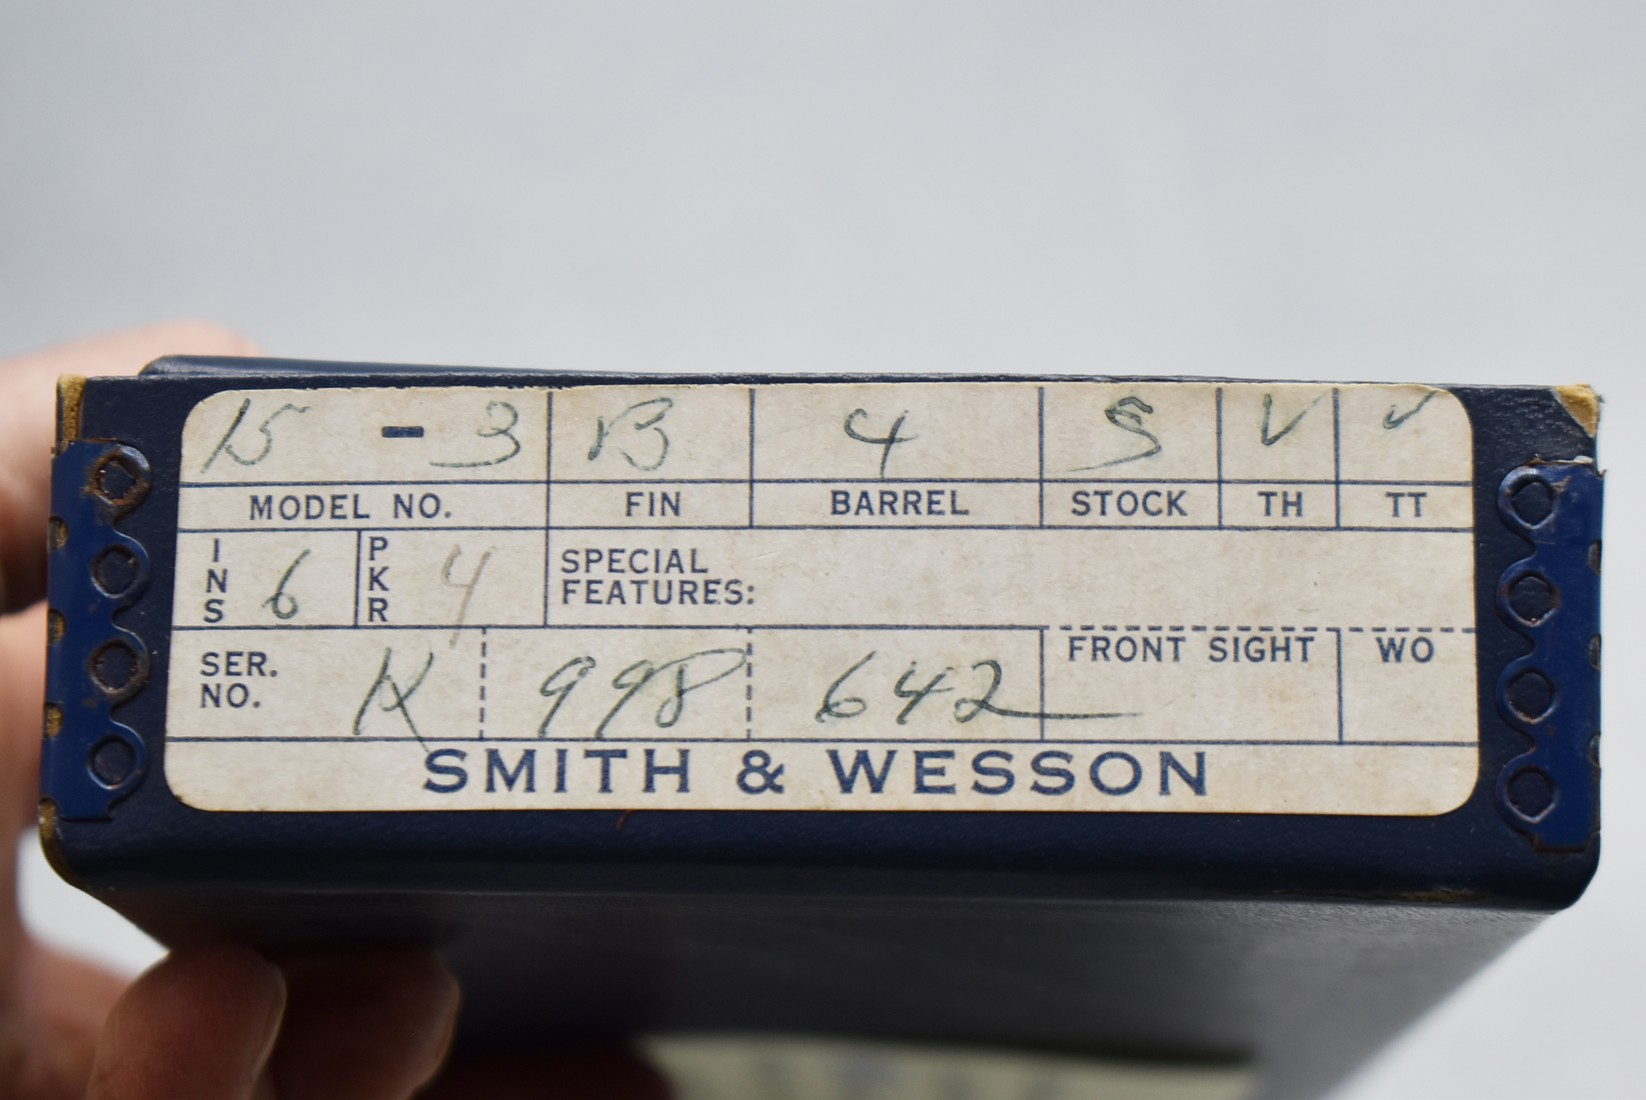 15 - 3 B 4 S ✓ ✓
MODEL NO. FIN BARREL STOCK TH TT
INS 6 PKR 4 SPECIAL FEATURES:
SER. NO. K 998 642 FRONT SIGHT WO
SMITH & WESSON